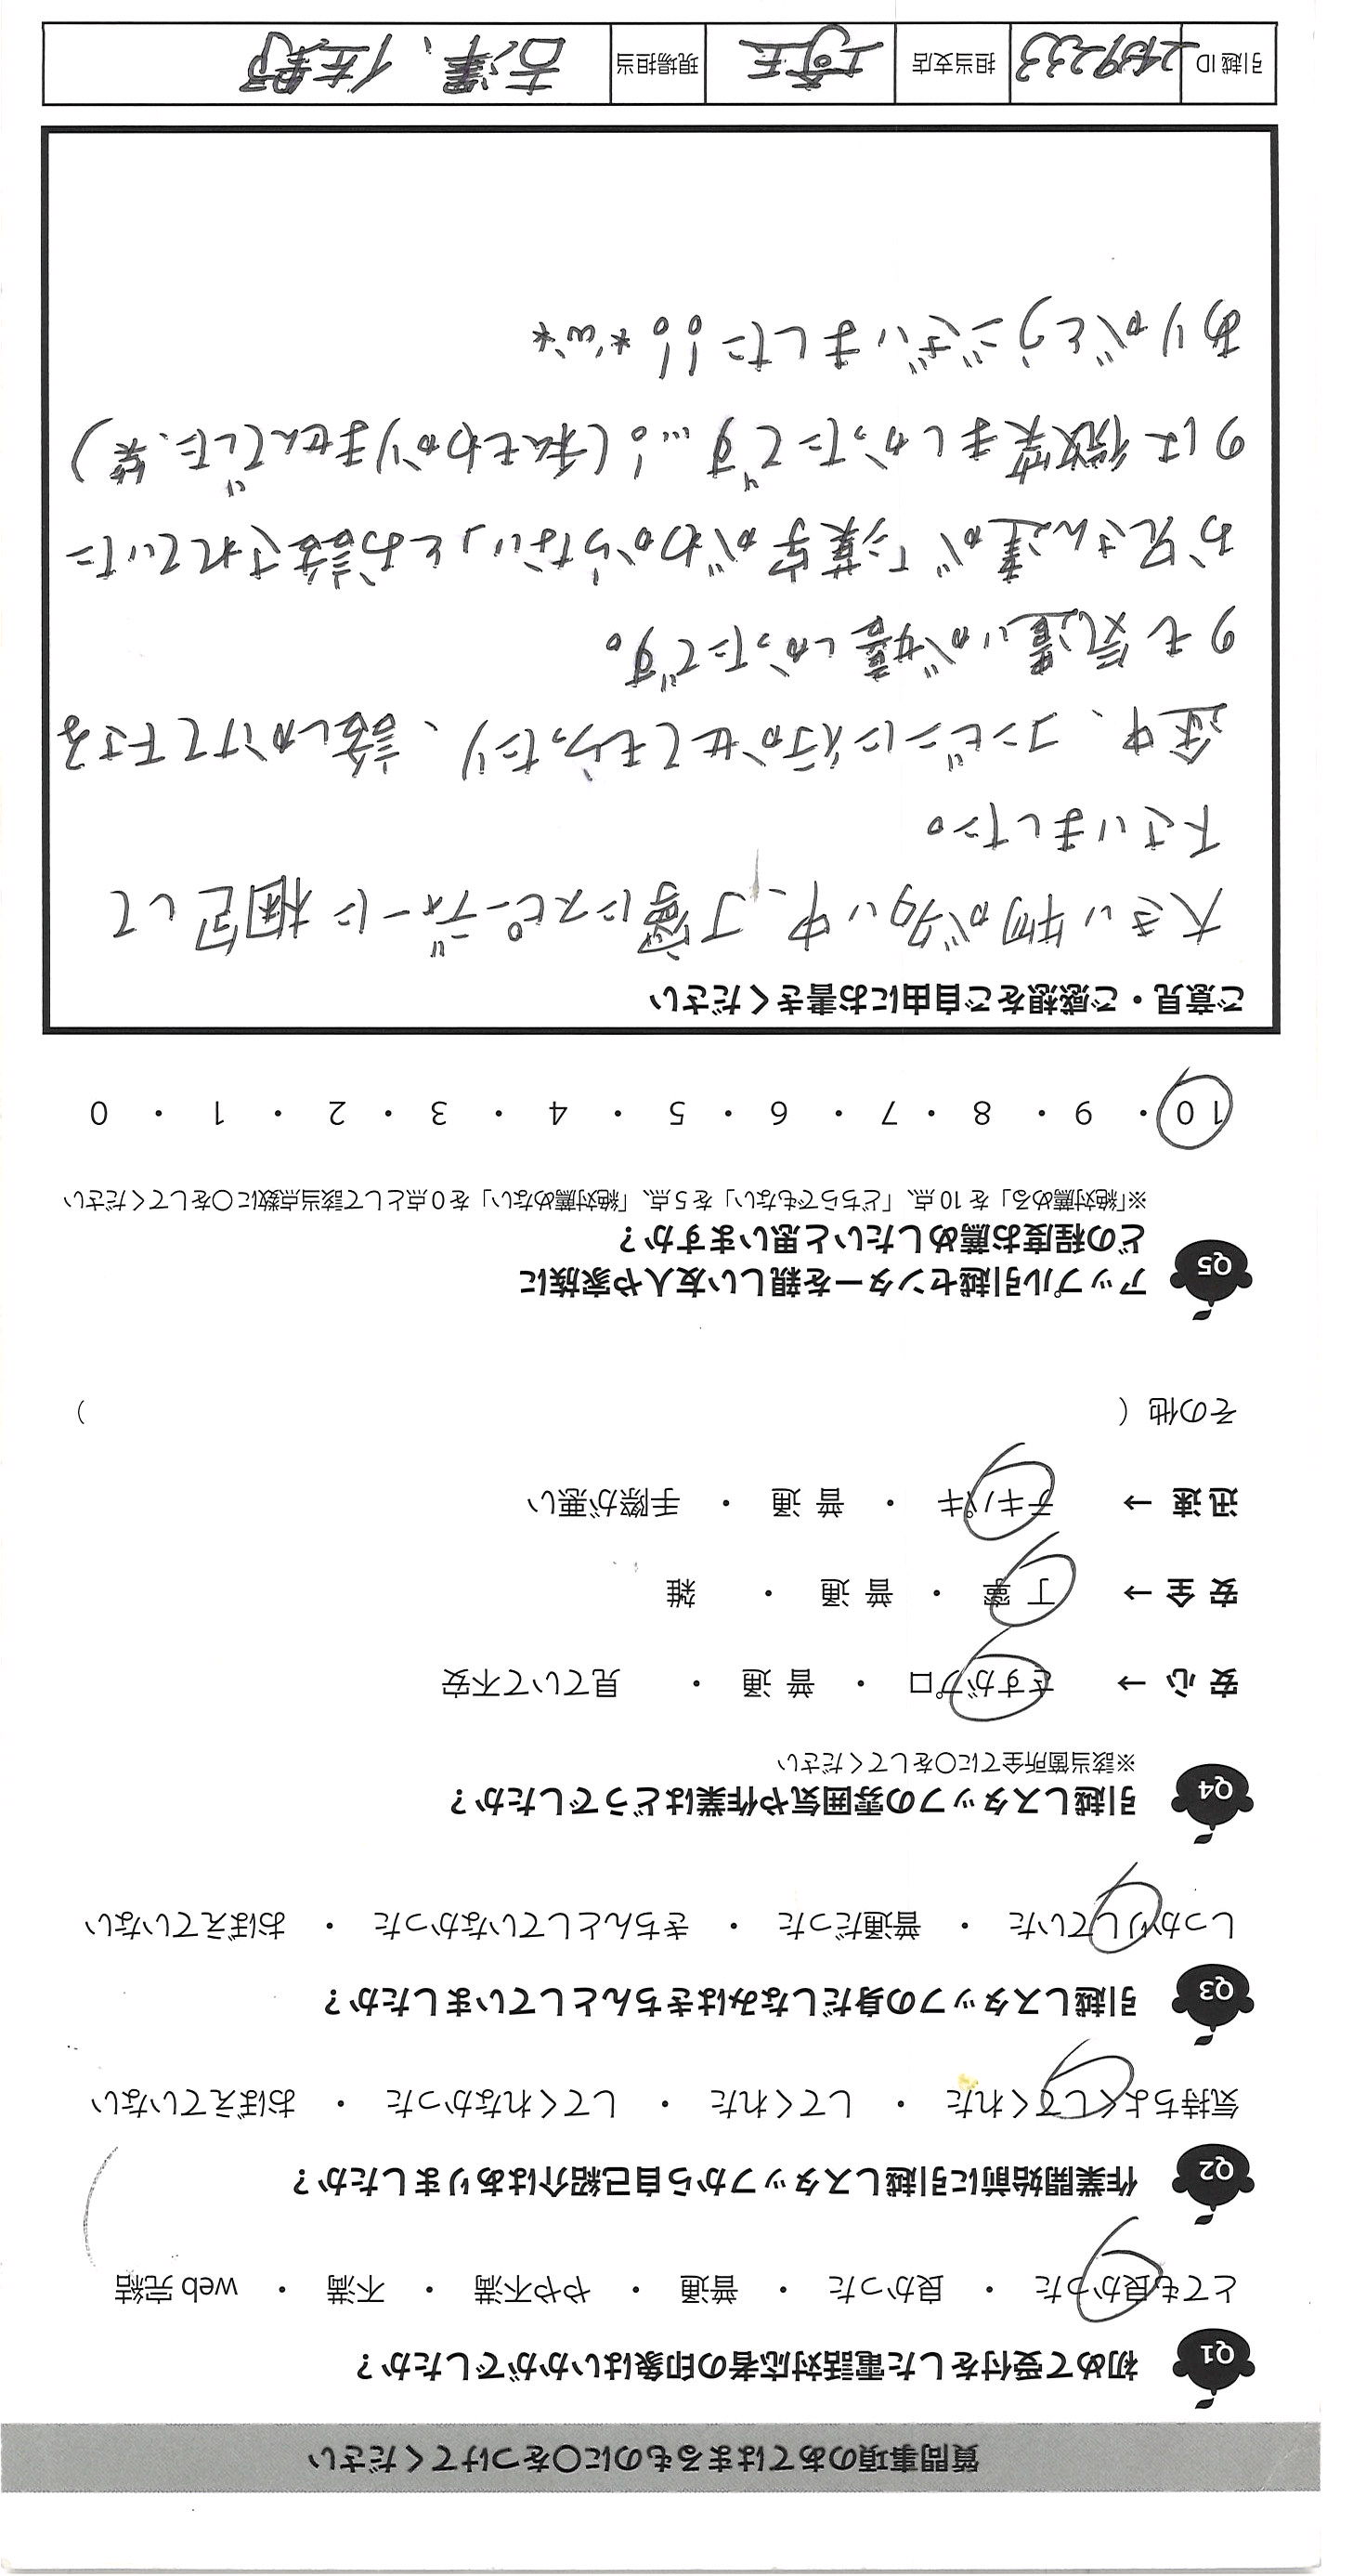 質問事項のあてはまるものに〇をつけてください
Q1 初めて受付をした電話対応者の印象はいかがでしたか？
とても良かった ・ 良かった ・ 普通 ・ やや不満 ・ 不満 ・ web 完結
Q2 作業開始前に引越しスタッフから自己紹介はありましたか？
気持ちよくしてくれた ・ してくれた ・ してくれなかった ・ おぼえていない
Q3 引越しスタッフの身だしなみはきちんとしていましたか？
しっかりしていた ・ 普通だった ・ きちんとしていなかった ・ おぼえていない
Q4 引越しスタッフの雰囲気や作業はどうでしたか？
※該当箇所全てに〇をしてください
安 心 → さすがプロ ・ 普 通 ・ 見ていて不安
安 全 → 丁 寧 ・ 普 通 ・ 雑
迅 速 → テキパキ ・ 普 通 ・ 手際が悪い
その他（ ）
Q5 アップル引越センターを親しい友人や家族に
どの程度お薦めしたいと思いますか？
※「絶対薦める」を 10 点、「どちらでもない」を 5 点、「絶対薦めない」を 0 点として該当点数に〇をしてください
10 ・ 9 ・ 8 ・ 7 ・ 6 ・ 5 ・ 4 ・ 3 ・ 2 ・ 1 ・ 0
ご意見・ご感想をご自由にお書きください
大きい物が多い中、丁寧にスピーディーに梱包して
下さいました。
途中、コンビニに行かせてもらったり、話しかけて下さる
のも気遣いが嬉しかったです。
お兄さん達が「葉字がわからない」とお話されていた
のは微笑ましかったです…！（私もわかりませんでした、笑）
ありがとうございました!! *'ω'*
引越 ID 2439233 担当支店 埼玉 現場担当 吉澤、佐野